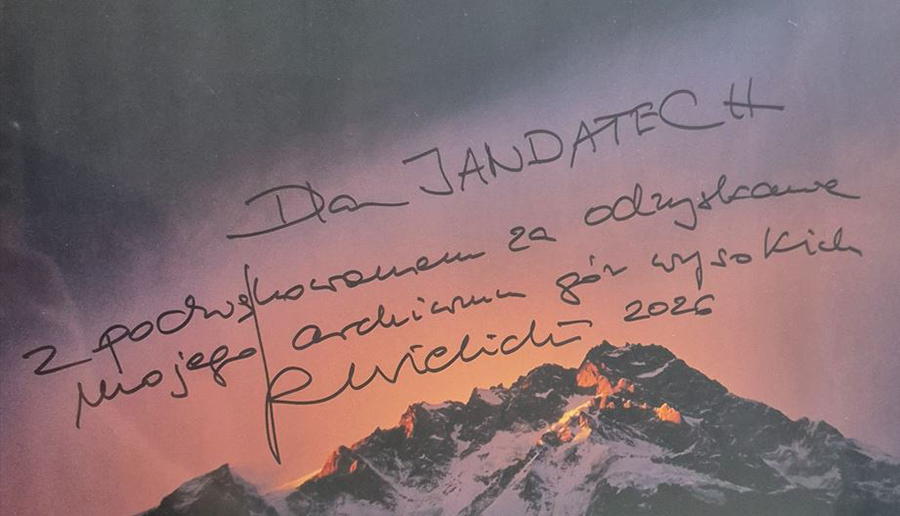 Dla JANDATECH
z podziękowaniem za odzyskanie
mojego archiwum gór wysokich
2026